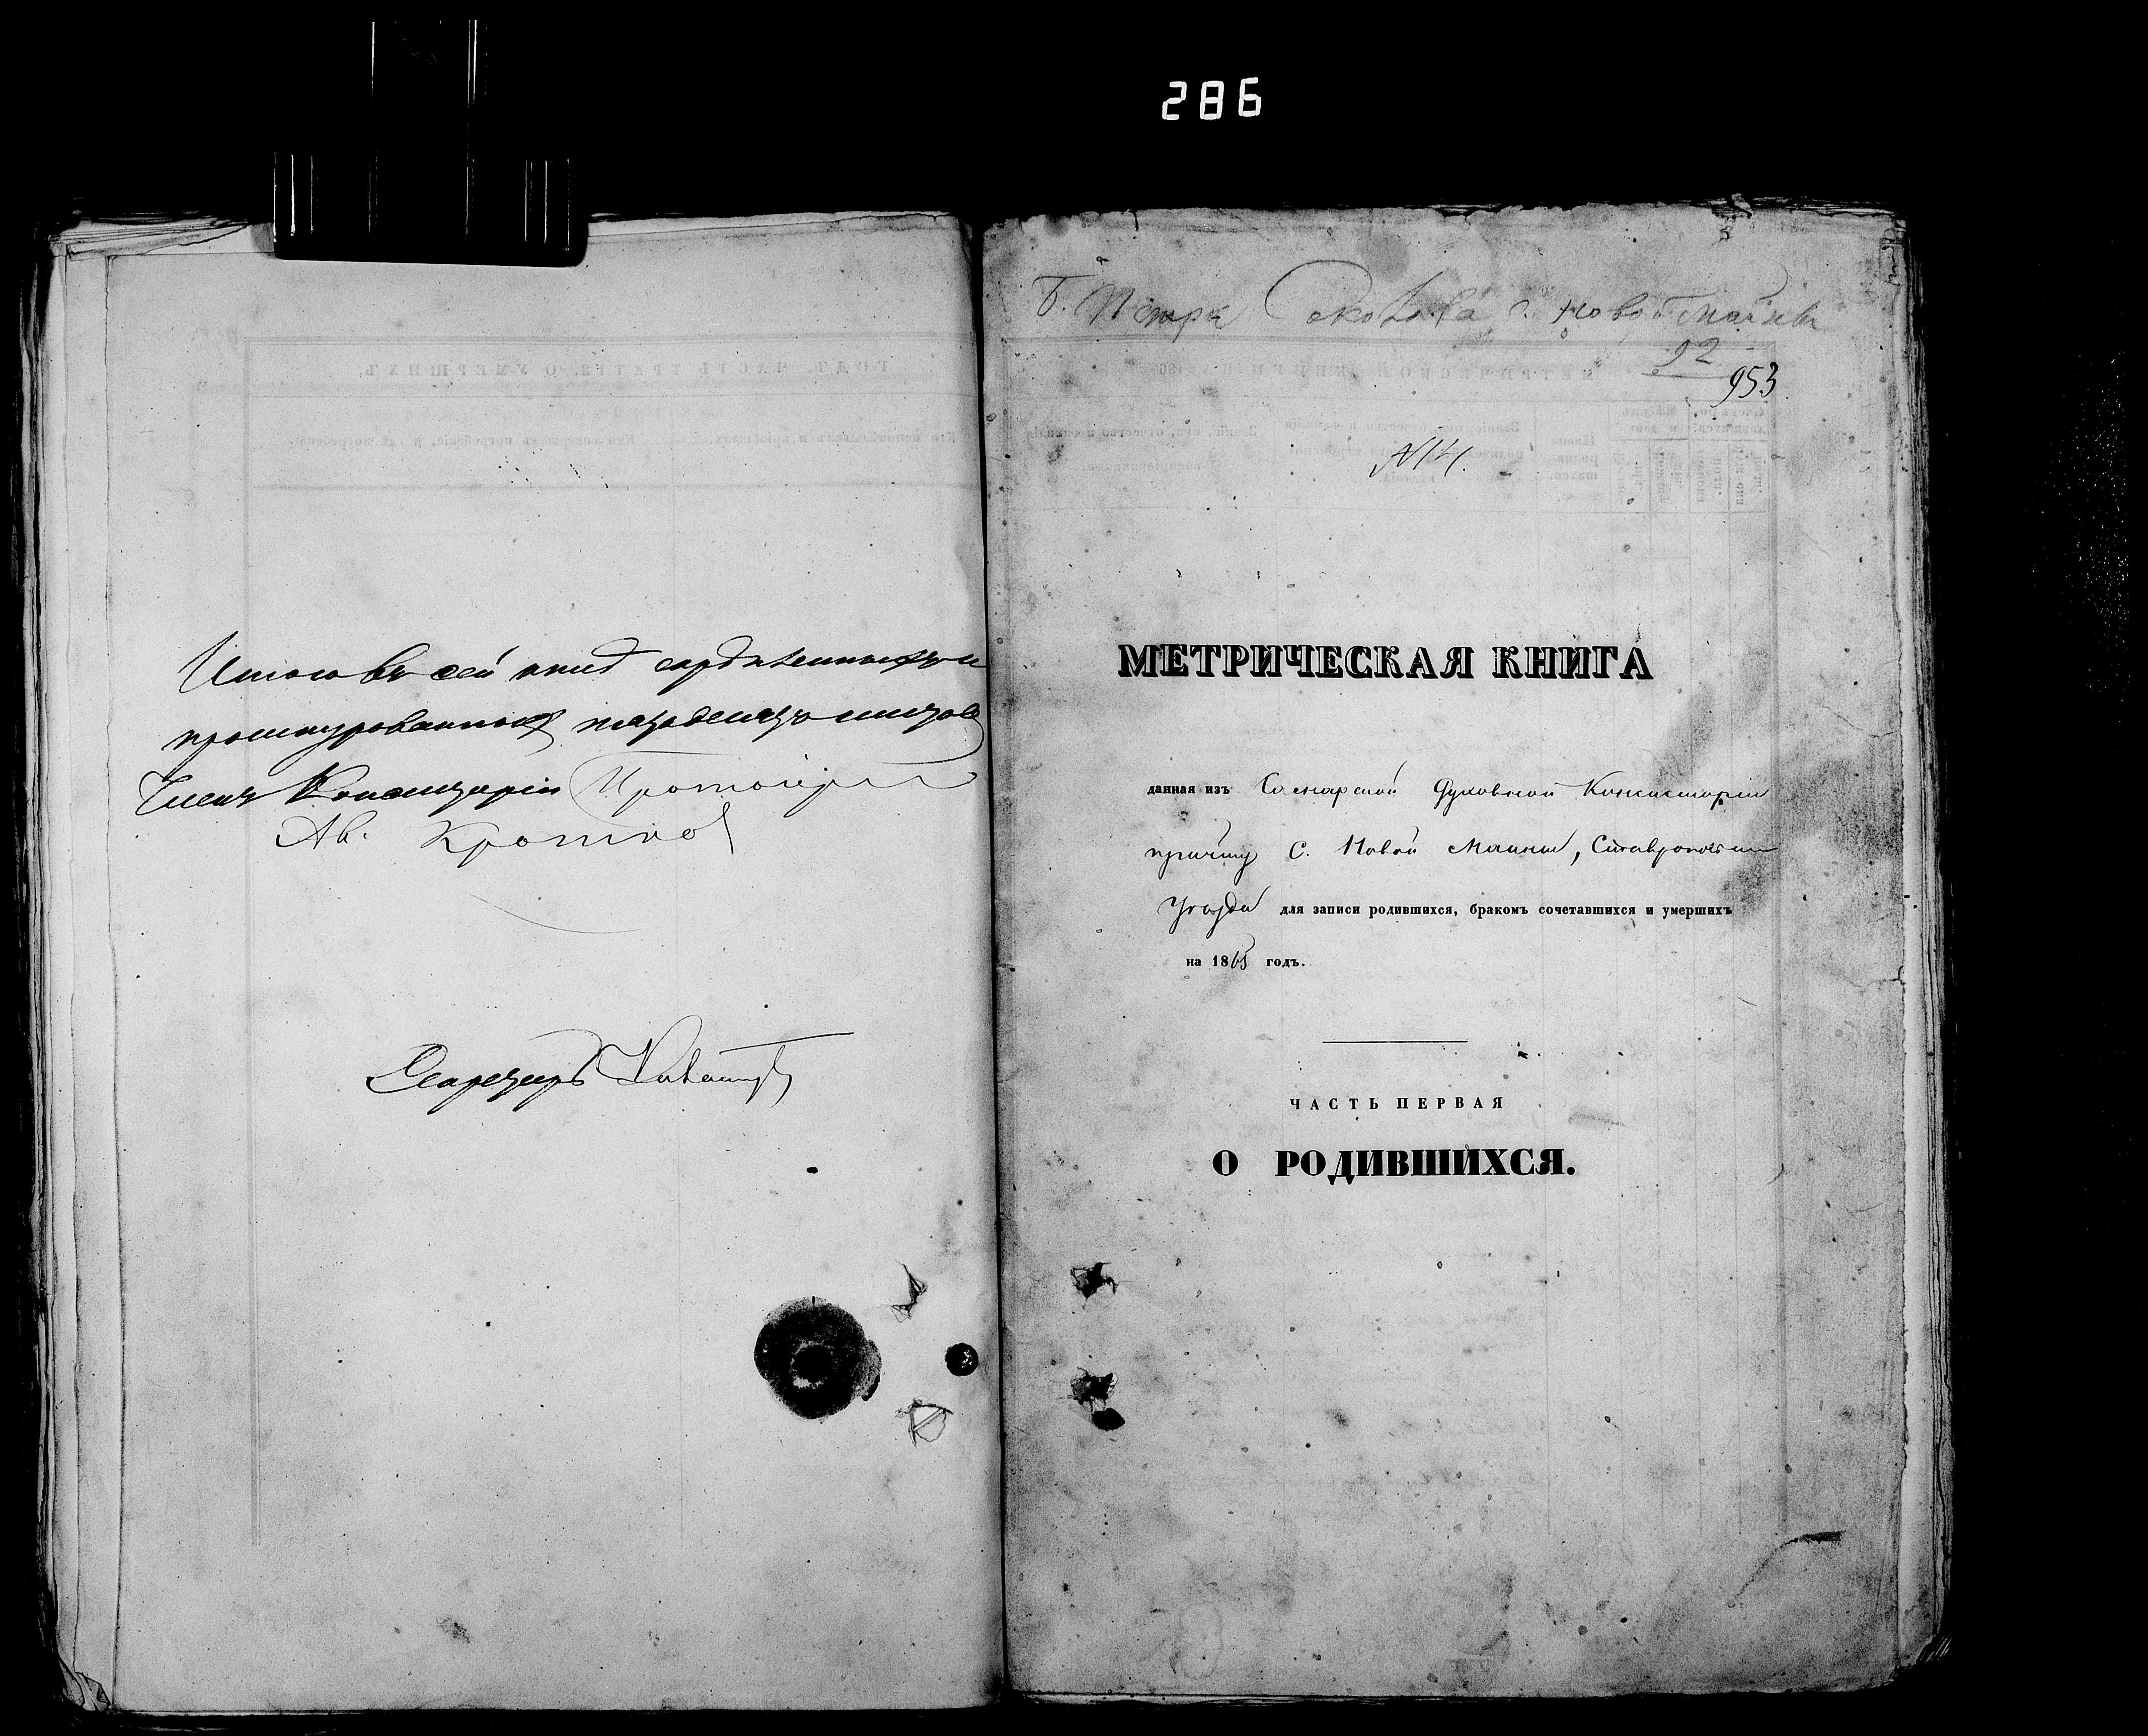 286
Итого въ сей книгѣ скрѣпленныхъ и
прошнурованныхъ пятьдесятъ листовъ
Членъ Консисторіи Протоіерей
Ав. Кротков
Секретарь
Б. Петра Соколова с. Новой Майны
92
953
№ 141.
МЕТРИЧЕСКАЯ КНИГА
данная изъ Самарской Духовной Консисторіи
причту С. Новой Маины, Ставропольск
уѣзда для записи родившихся, бракомъ сочетавшихся и умершихъ
на 1865 годъ.
ЧАСТЬ ПЕРВАЯ
О РОДИВШИХСЯ.